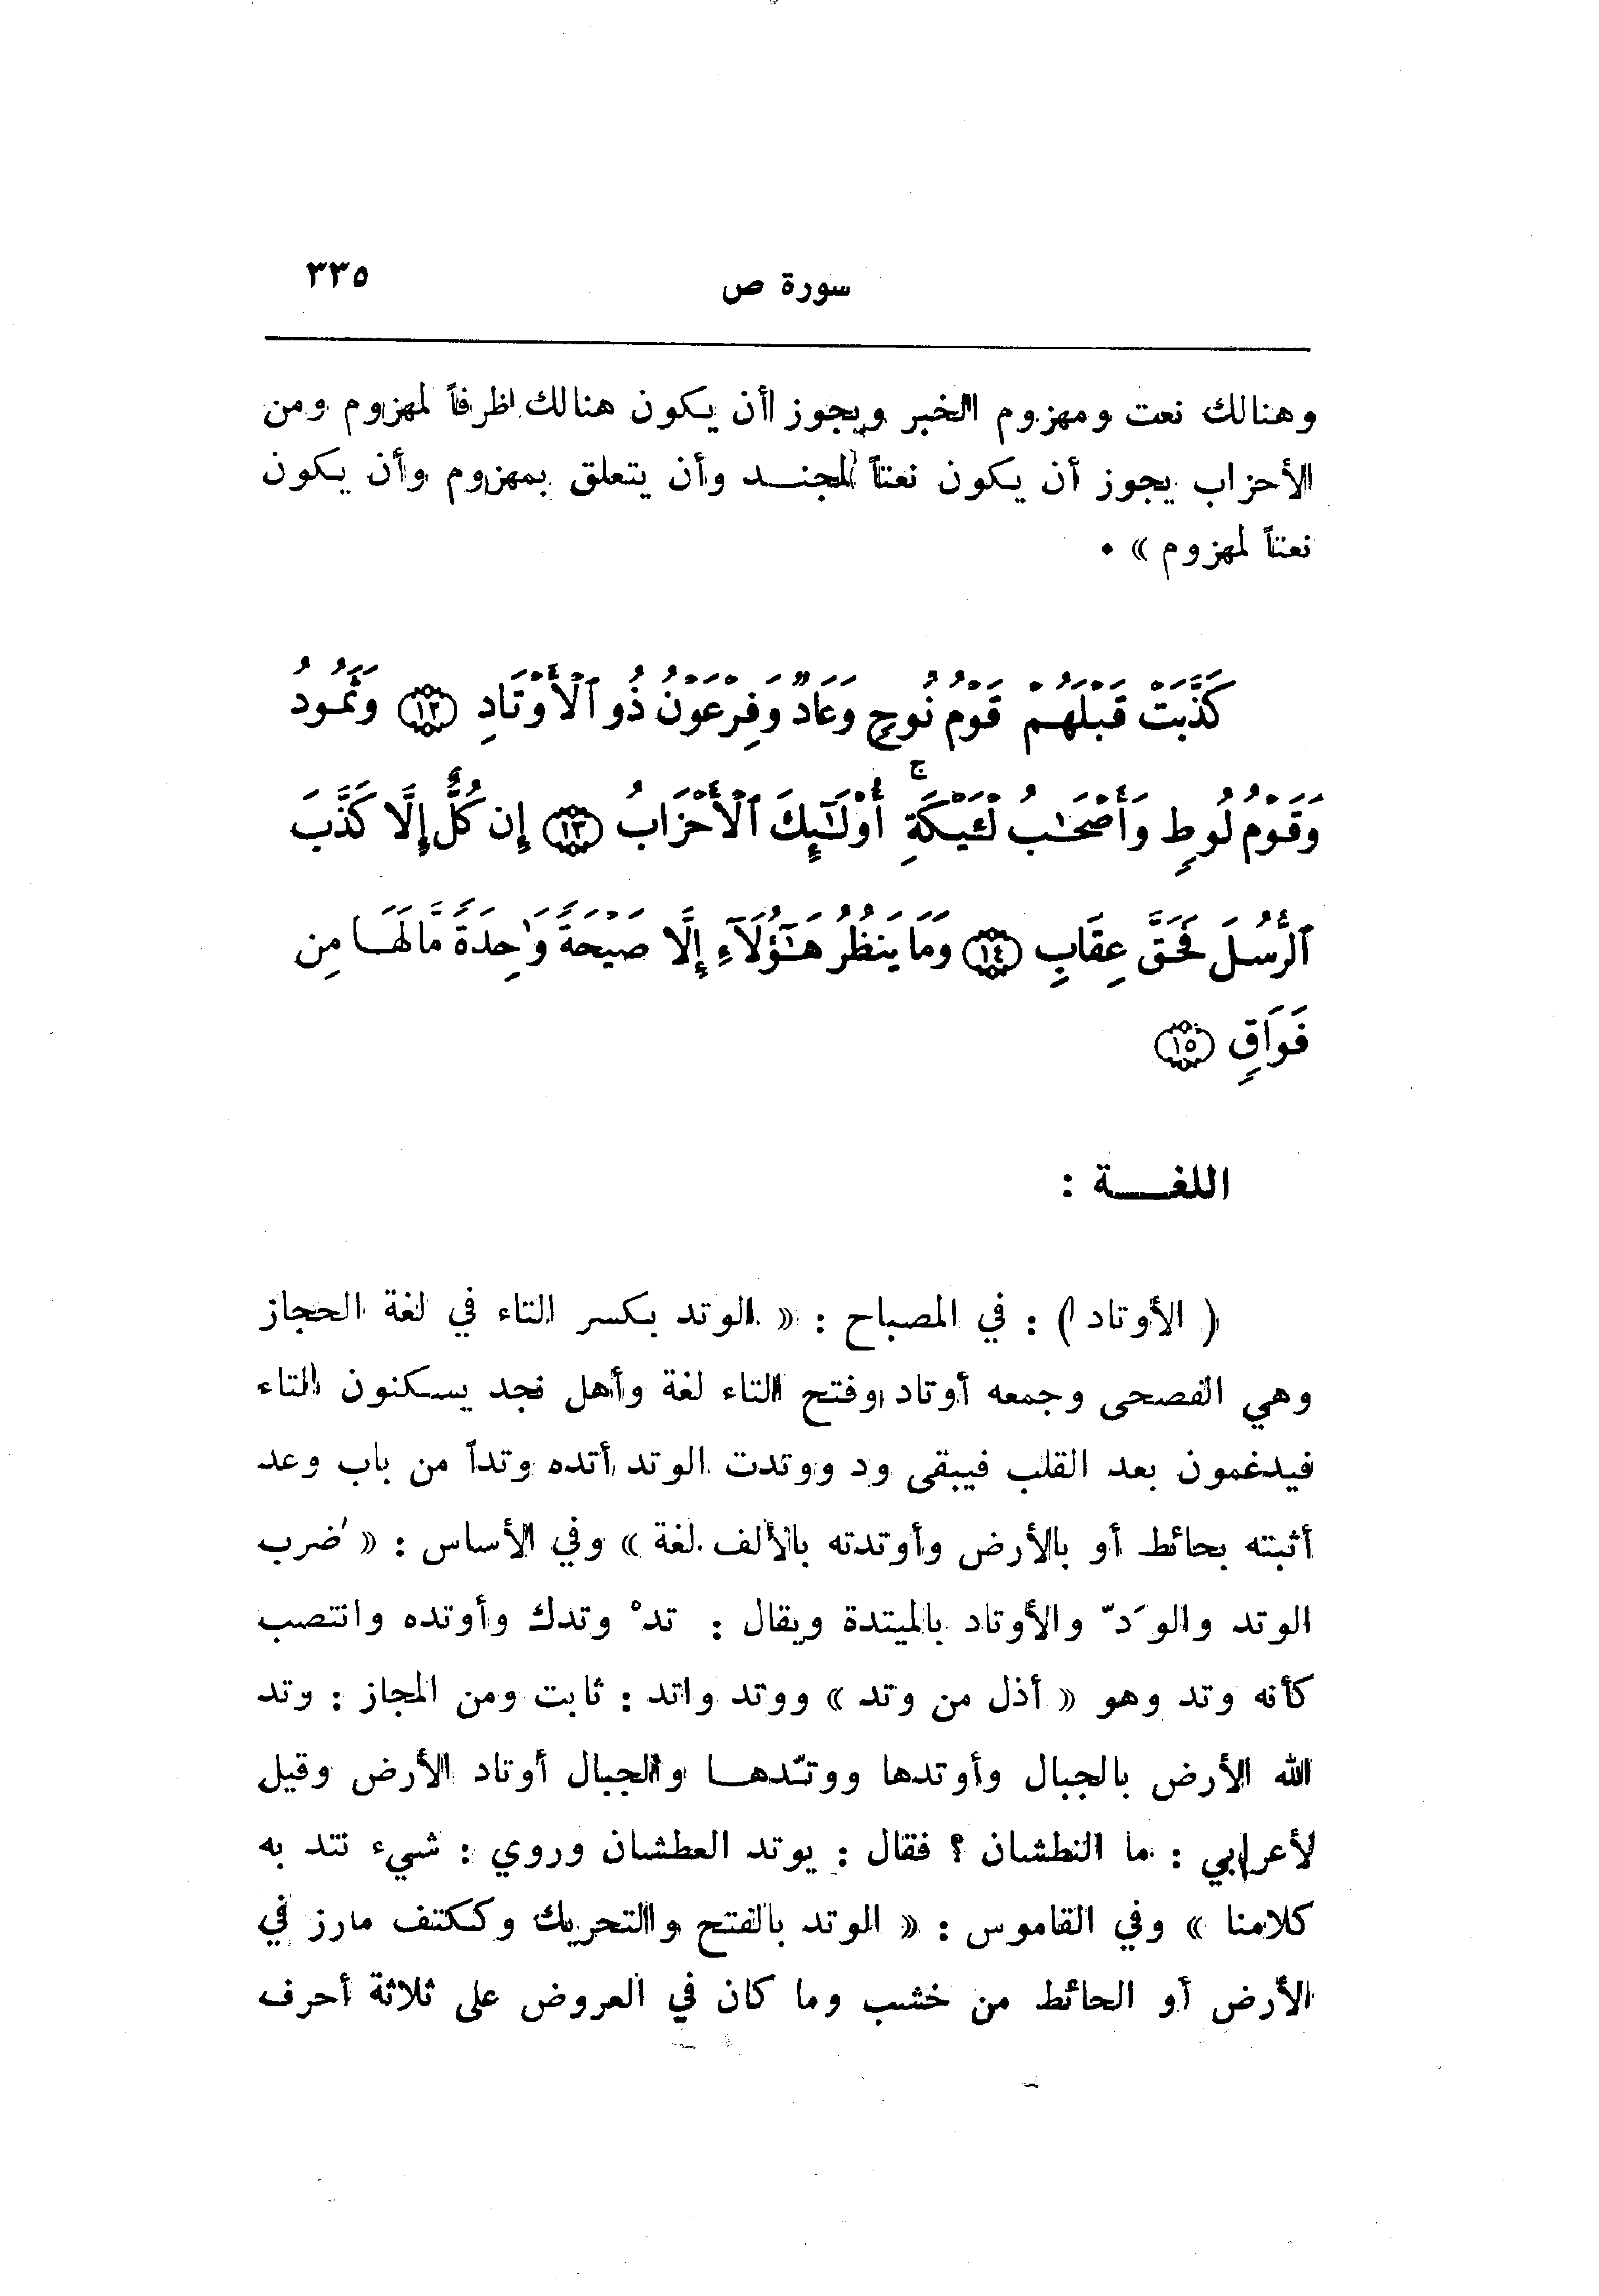 سورة ص
٣٣٥
وهنالك نعت ومهزوم الخبر ويجوز أن يكون هنالك ظرفاً لمهزوم ومن
الأحزاب يجوز أن يكون نعتاً لجنـــد وأن يتعلق بمهزوم وأن يكون
نعتاً لمهزوم » •
كَذَّبَتْ قَبْلَهُمْ قَوْمُ نُوحٍ وَعَادٌ وَفِرْعَوْنُ ذُو ٱلْأَوْتَادِ ﴿١٢﴾ وَثَمُودُ
وَقَوْمُ لُوطٍ وَأَصْحَٰبُ لْـَٔيْكَةِ ۚ أُوْلَٰٓئِكَ ٱلْأَحْزَابُ ﴿١٣﴾ إِن كُلٌّ إِلَّا كَذَّبَ
ٱلرُّسُلَ فَحَقَّ عِقَابِ ﴿١٤﴾ وَمَا يَنظُرُ هَٰٓؤُلَآءِ إِلَّا صَيْحَةً وَٰحِدَةً مَّا لَهَا مِن
فَوَاقٍ ﴿١٥﴾
اللغـــة :
( الأوتاد ) : في المصباح : « الوتد بكسر التاء في لغة الحجاز
وهي الفصحى وجمعه أوتاد وفتح التاء لغة وأهل نجد يسكنون التاء
فيدغمون بعد القلب فيبقى ود ووتدت الوتد أتده وتداً من باب وعد
أثبته بحائط أو بالأرض وأوتدته بالألف لغة » وفي الأساس : « ضرب
الوتد والوَدّ والأوتاد بالميتدة ويقال : تدْ وتدك وأوتده وانتصب
كأنه وتد وهو « أذل من وتد » ووتد واتد : ثابت ومن المجاز : وتد
الله الأرض بالجبال وأوتدها ووتّدهـــا والجبال أوتاد الأرض وقيل
لأعرابي : ما النطشان ؟ فقال : يوتد العطشان وروي : شيء نتد به
كلامنا » وفي القاموس : « الوتد بالفتح والتحريك وككتف مارز في
الأرض أو الحائط من خشب وما كان في العروض على ثلاثة أحرف